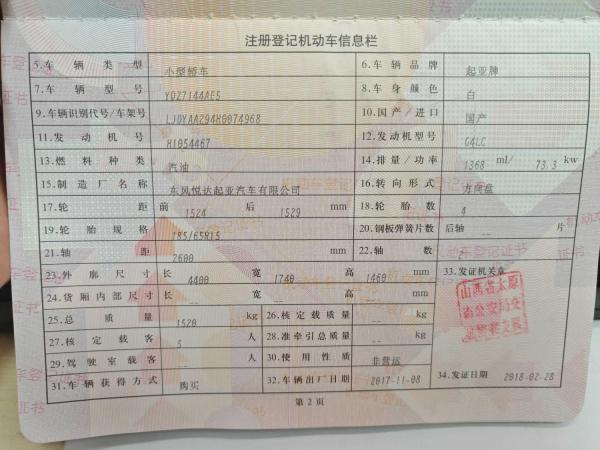 注册登记机动车信息栏
5.车辆类型 小型轿车 6.车辆品牌 起亚牌
7.车辆型号 YQZ7144AE5 8.车身颜色 白
9.车辆识别代号/车架号 LJDYAAZ94H0074968 10.国产/进口 国产
11.发动机号 H1054467 12.发动机型号 G4LC
13.燃料种类 汽油 14.排量/功率 1368 ml/ 73.3 kw
15.制造厂名称 东风悦达起亚汽车有限公司 16.转向形式 方向盘
17.轮距 前 1524 后 1529 mm 18.轮胎数 4
19.轮胎规格 185/65R15 20.钢板弹簧片数 后轴 -- 片
21.轴距 2600 mm 22.轴数 2
23.外廓尺寸 长 4400 宽 1740 高 1460 mm 33.发证机关章
24.货厢内部尺寸 长 -- 宽 -- 高 -- mm
25.总质量 1520 kg 26.核定载质量 -- kg
27.核定载客 5 人 28.准牵引总质量 -- kg
29.驾驶室载客 -- 人 30.使用性质 非营运
31.车辆获得方式 购买 32.车辆出厂日期 2017-11-08 34.发证日期 2018-02-28
第2页